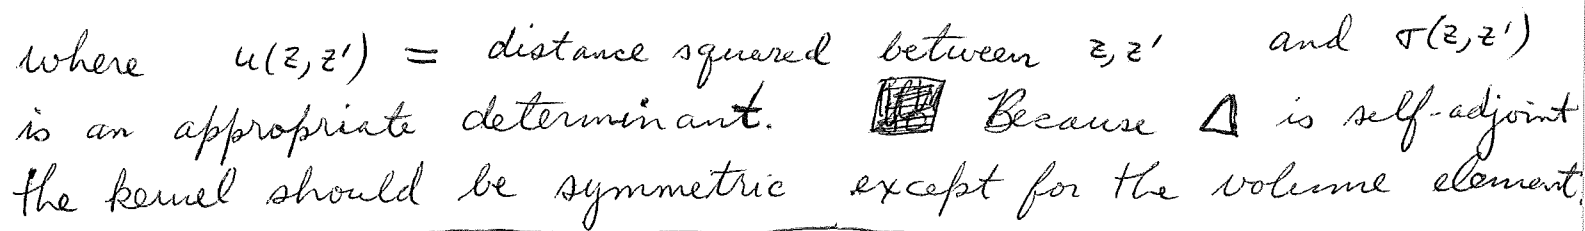 where u(z,z') = distance squared between z,z' and σ(z,z')
is an appropriate determinant. Because Δ is self-adjoint
the kernel should be symmetric except for the volume element.